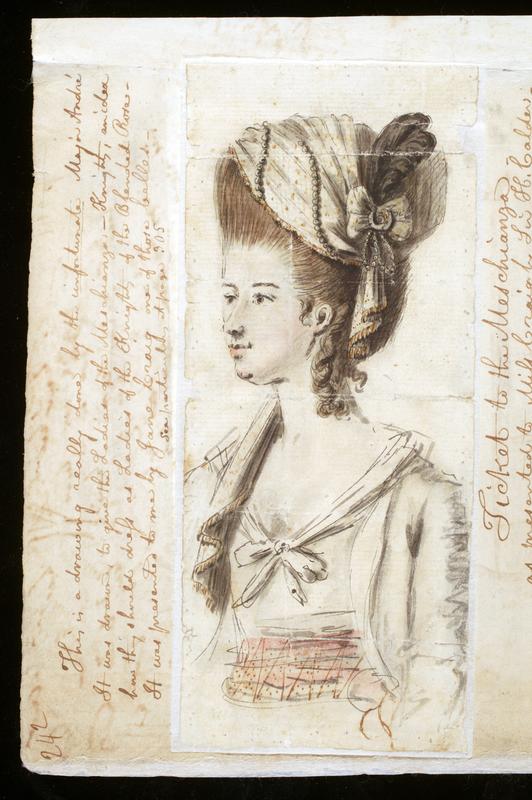 This is a drawing really done by the unfortunate Major André
It was drawn to give the Ladies of the Meschianza – Knights, an idea
how they should dress as Ladies of the Knights of the Blended Rose –
It was presented to me by Jane Craig one of those belles. –
See portraits at page 305
242
Ticket to the Meschianza